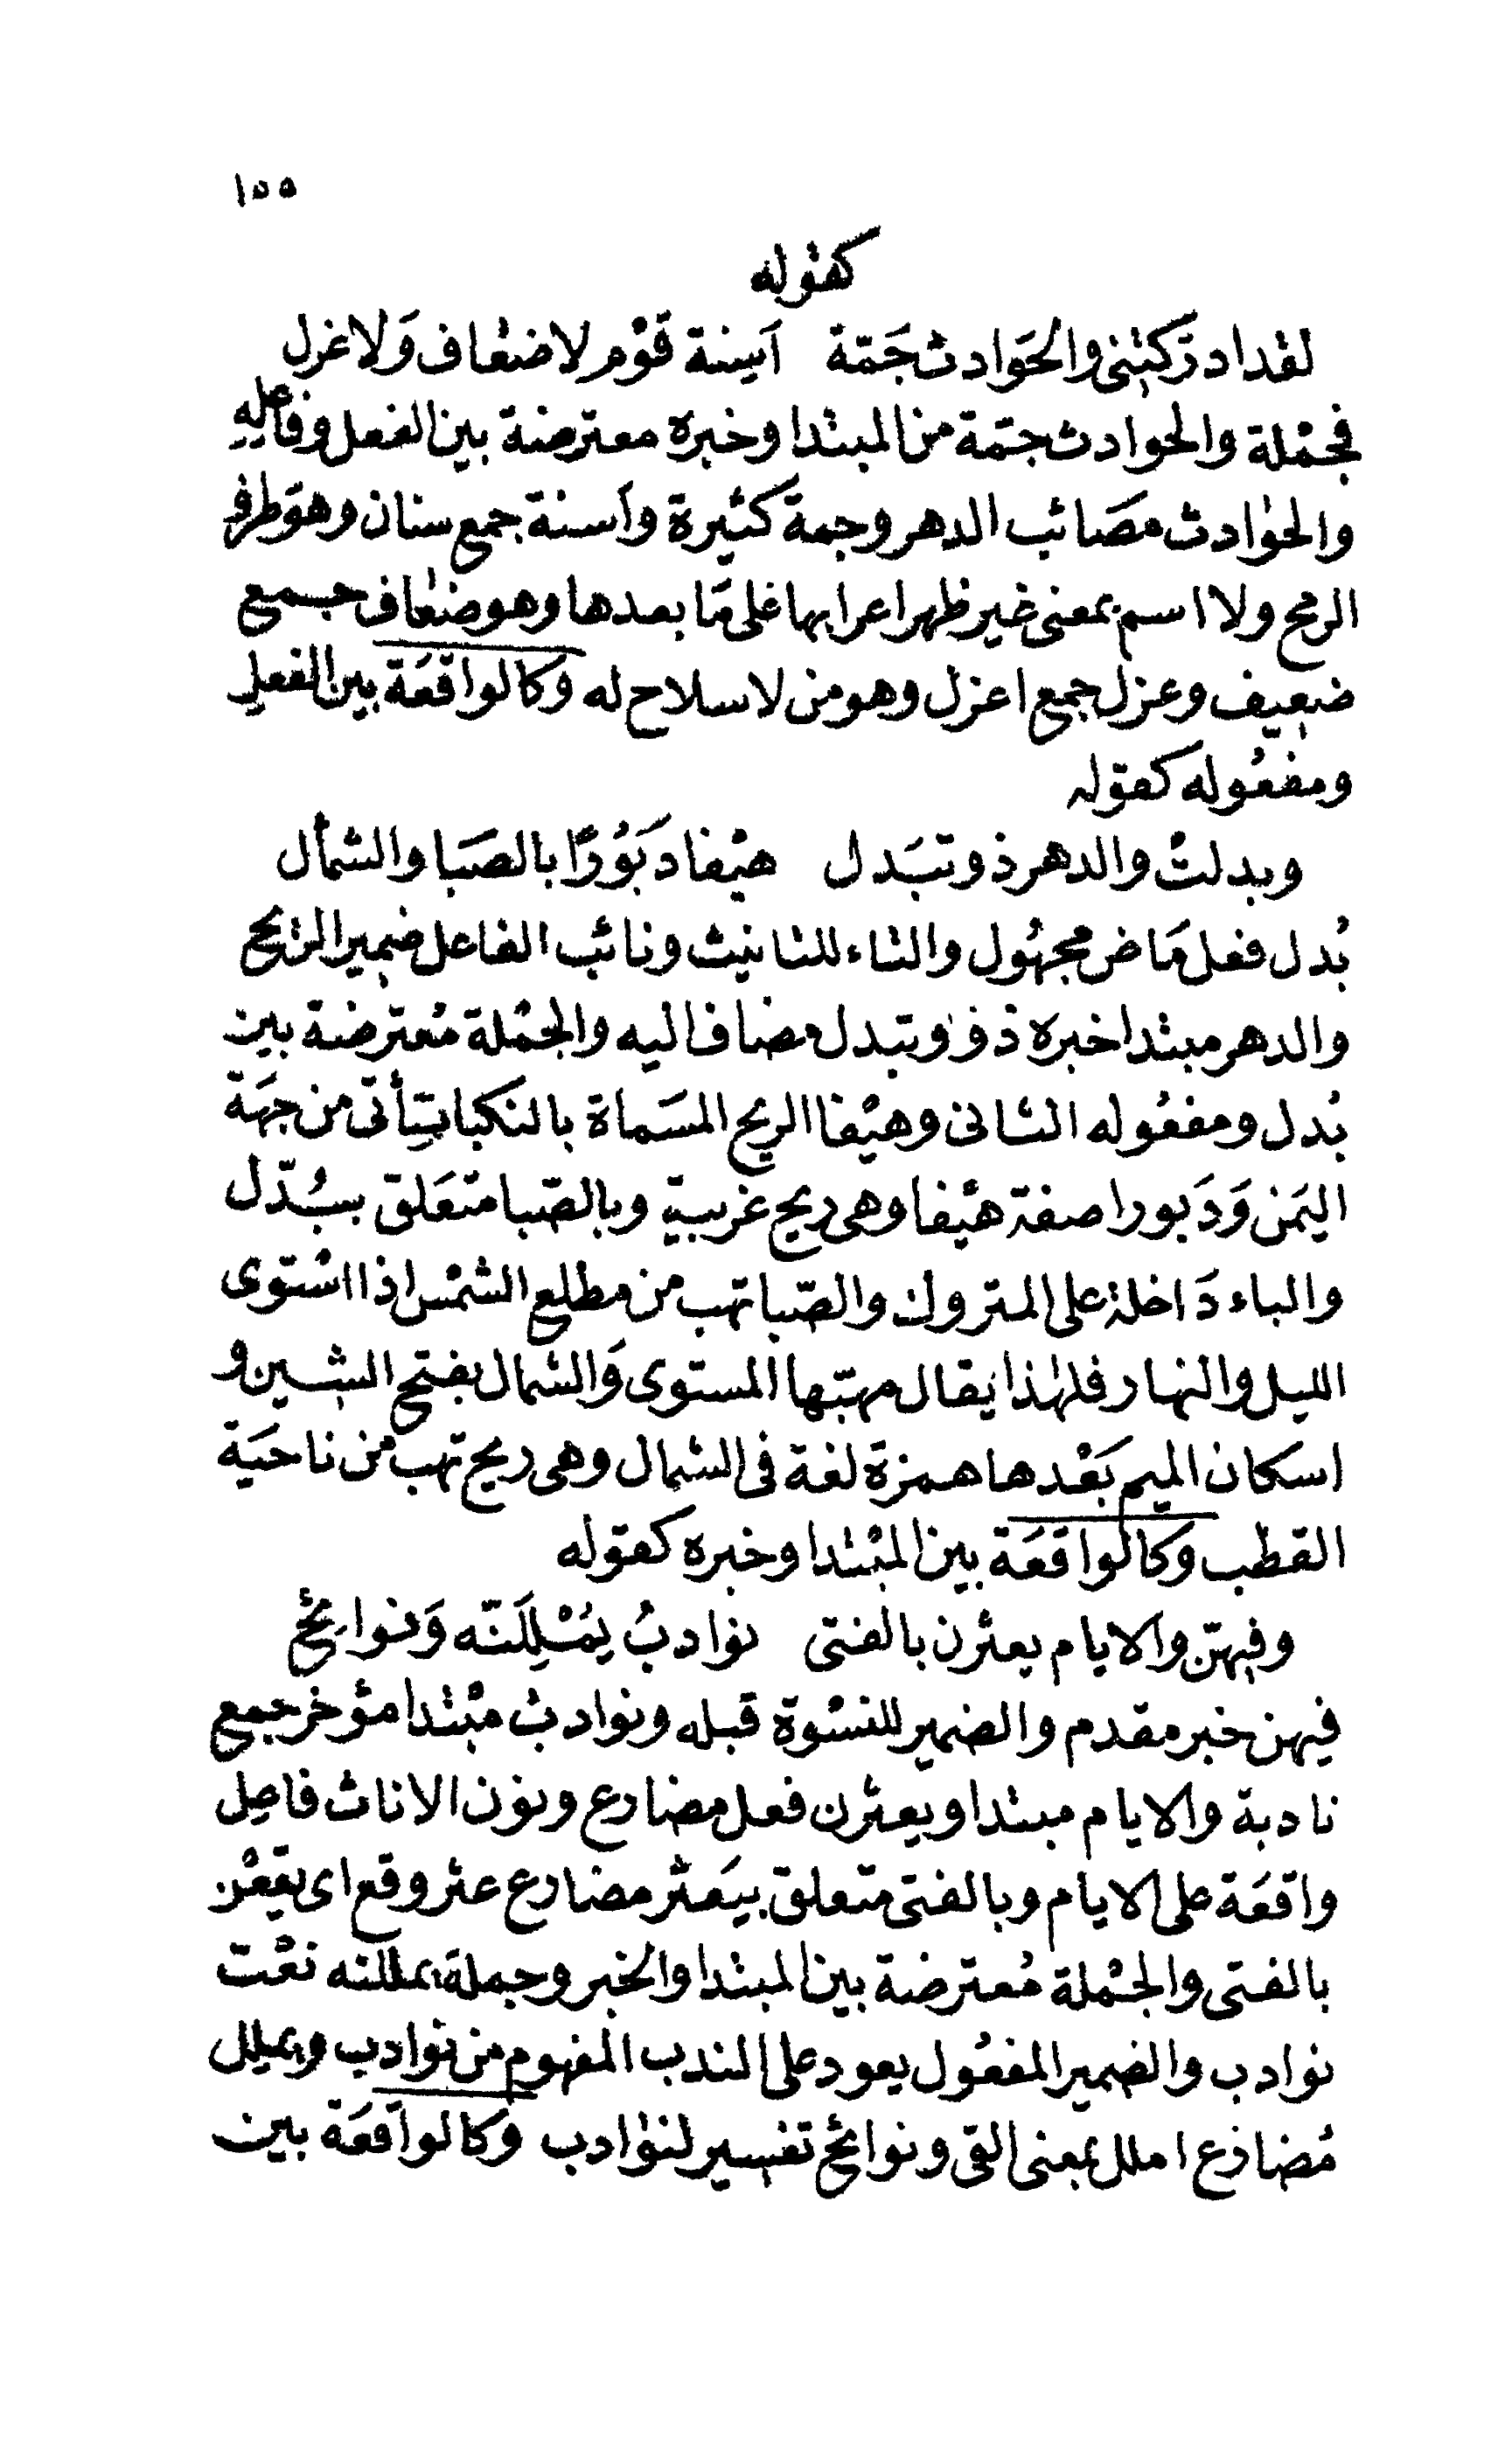 ١٥٥
كقوله
لقد ادركتنى والحَوادث جَمّة   اَسِنة قَوْم لا ضعٰاف وَلا عزل
فجمْلة والحوادث جمّة من المبتدا وخبره معترضة بين الفعل وفاعلِهِ
والحوٰادث مصَائب الدهر وجمة كثيرة واَسنة جمع سنان وهوَ طرف
الرمح ولا اسم بمعنى غير ظهر اعرابها على مَا بعدها وهو ضعٰاف جمع
ضعيف وعزل جمع اعزل وهو من لا سلاح له وكالواقعَة بين الفعل
ومفعُوله كقوله
وبدلتْ والدهر ذو تبَدل   هيْفا دَبَوُرًا بالصَبَا والشمأل
بُدل فعل مَاض مجهُول والتاء للتانيث ونائب الفاعل ضمير الريح
والدهر مبتدا خبره ذو وتبدل مضاف اليه والجمْلة مُعترضة بين
بُدل ومفعُوله الثانى وهيْفا الريح المسَماة بالنكبا تتأتى من جهَة
اليَمن وَدَبورا صفة هيْفا وهى ريح غربية وبالصّبا متعَلق ببُدّل
والباء دَاخلة على المتروك والصّبا تهب من مطلع الشمْس اذا اسْتوى
الليل والنهار فلهٰذا يقال مهبّها المستوى وَالشمال بفتح الشين و
اسكان الميم بَعْدها همزة لغة فى الشمال وهى ريح تهب من ناحيَة
القطب وكالواقعَة بين المبْتدا وخبره كقوله
وفيهنّ والايام يعثرن بالفتى   نوادبُ يُمْلِلَنّه وَنوائح
فيهن خبر مقدم والضمير للنسْوة قبله ونوادبُ مبْتدا مئوخر جمع
نادبة والايام مبتدا ويعثرن فعل مضارع ونون الاناث فاعل
واقعَة على الايام وبالفتى متعلق بيَعثر مضارع عثر وقع اى يقعْن
بالفتى والجمْلة مُعترضة بين المبتدا والخبر وجملة يمللنه نعْت
نوادب والضمير المفعُول يعود على الندب المفهوم من نوادب ويملل
مُضارع املل بمعنى القى ونوائح تفسير لنوٰادب وكالواقعَة بين